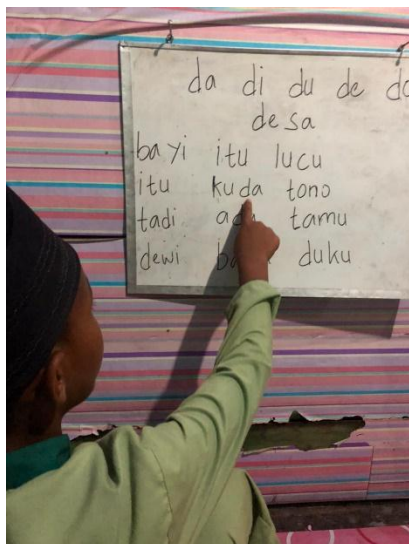 da di du de do
desa
bayi itu lucu
itu kuda tono
tadi ada tamu
dewi duku